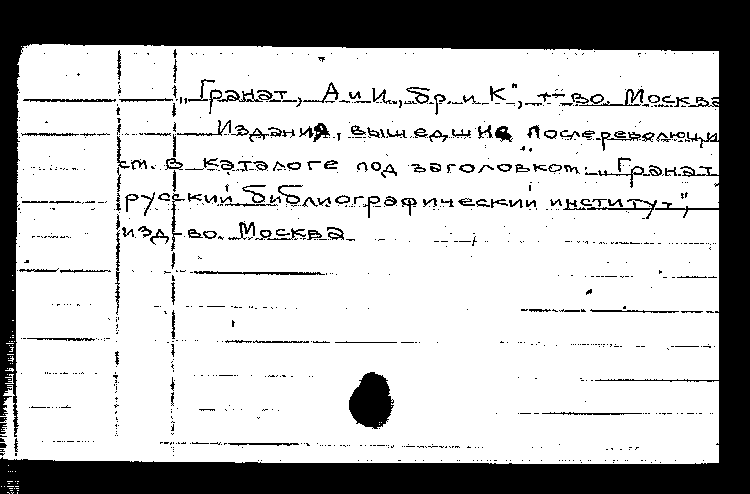 „Гранат, А и И, бр. и К", т-во. Москва
Издания, вышедшие после революци
см. в каталоге под заголовком: „Гранат
русский библиографический институт",
изд-во. Москва